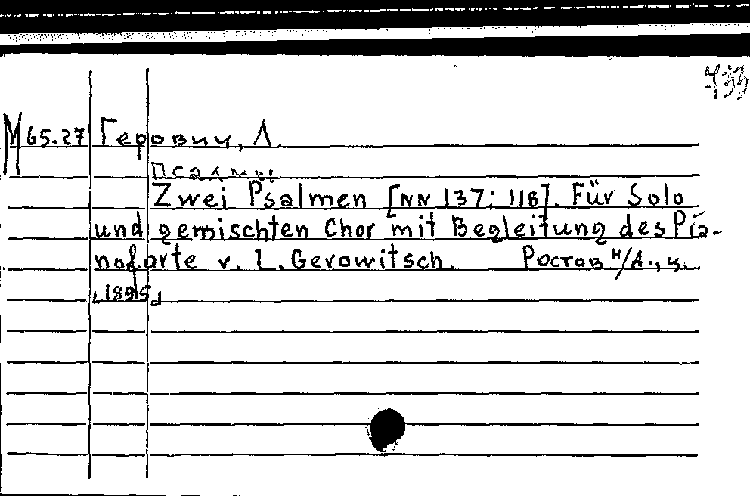 433
M 65.27 Герович, Л.
Псалмы
Zwei Psalmen [NN 137; 118]. Für Solo
und gemischten Chor mit Begleitung des Pia-
noforte v. L. Gerowitsch. Ростов н/Д., ц.
1895